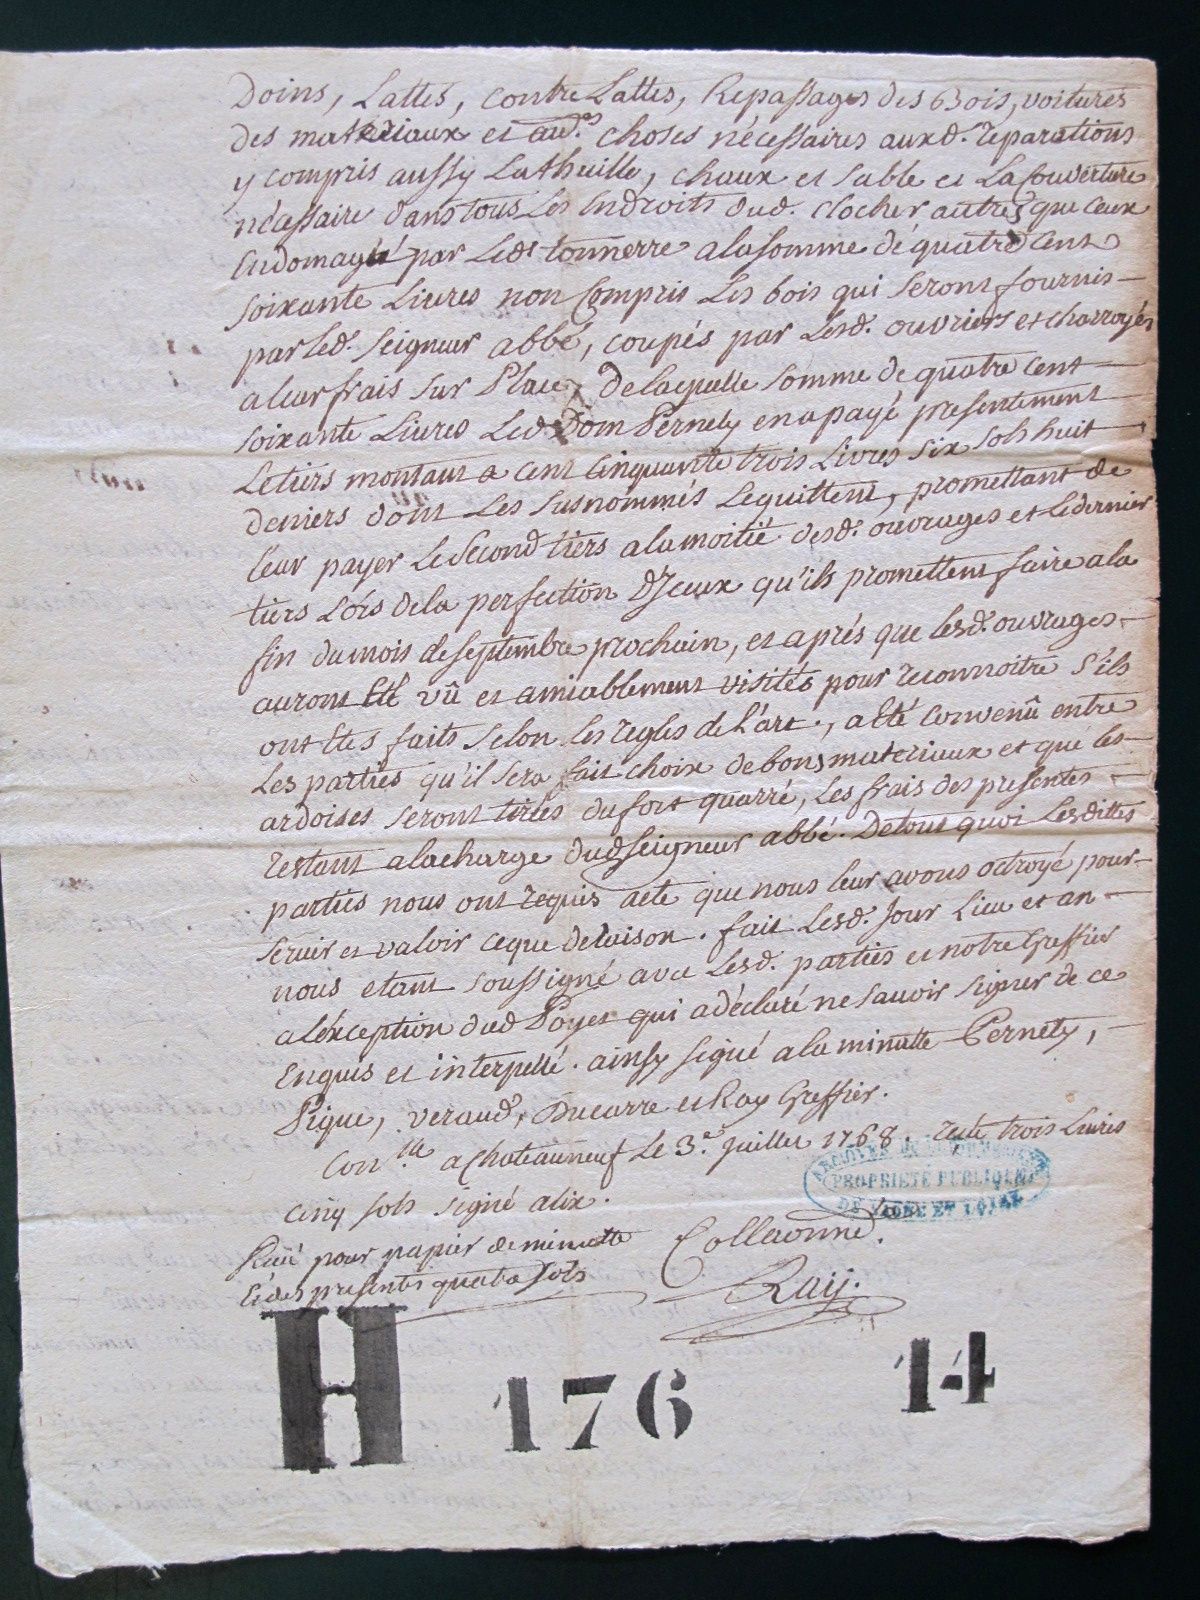 Doins, Lattes, contre Lattes, Repassages des Bois, voitures
des materiaux et aud.es choses nécessaires auxd. reparations
y compris aussy Lathuille, chaux et sable et La Couverture
nécessaire dans tous Les Endroits dud. clocher autres que ceux
Endomagé par Led. tonnerre a la somme de quatre cent
soixante Livres non Compris Les bois qui seront fournis
par led. seigneur abbé, coupés par Lesd. ouvriers et charroyés
a leur frais sur Place, de laquelle somme de quatre cent
soixante Livres Led. Dom Pernety en a payé presentement
Le tiers montant a cent cinquante trois Livres six sols huit
deniers dont Les susnommés Le quittent, promettant de
leur payer Le second tiers a la moitié desd. ouvrages et le dernier
tiers Lors de la perfection d'Jceux qu'ils promettent faire a la
fin du mois de septembre prochain, et aprés que lesd. ouvrages
auront été vû et amiablement visités pour reconnoitre s'ils
ont étés faits selon les regles de L'art, a été convenû entre
Les parties qu'il sera fait choix de bons materiaux et que les
ardoises seront tirées du fort quarré, Les frais des presentes
restant a la charge dud. seigneur abbé. De tout quoi Lesdittes
parties nous ont requis acte que nous leur avons octroyé pour
servir et valoir ce que de raison. fait Lesd. Jour Lieu et an
nous etant soussigné avec Lesd. parties et notre Greffier
a l'éxception dud Poyet qui a déclaré ne savoir signer de ce
Enquis et interpellé. ainsy signé a la minutte Pernety,
Pigue, veraud, Ducarre et Ray Greffier.
Con.lle a Chateauneuf Le 3.e Juillet 1768. recu trois Livres
cinq sols signé alix.
Recü pour papier de minutte
et des presentes quatre sols
Collaonné.
Raij.
ARCHIVES DEPARTEMENTALES
PROPRIETE PUBLIQUE
DE SAONE ET LOIRE
H 176 14